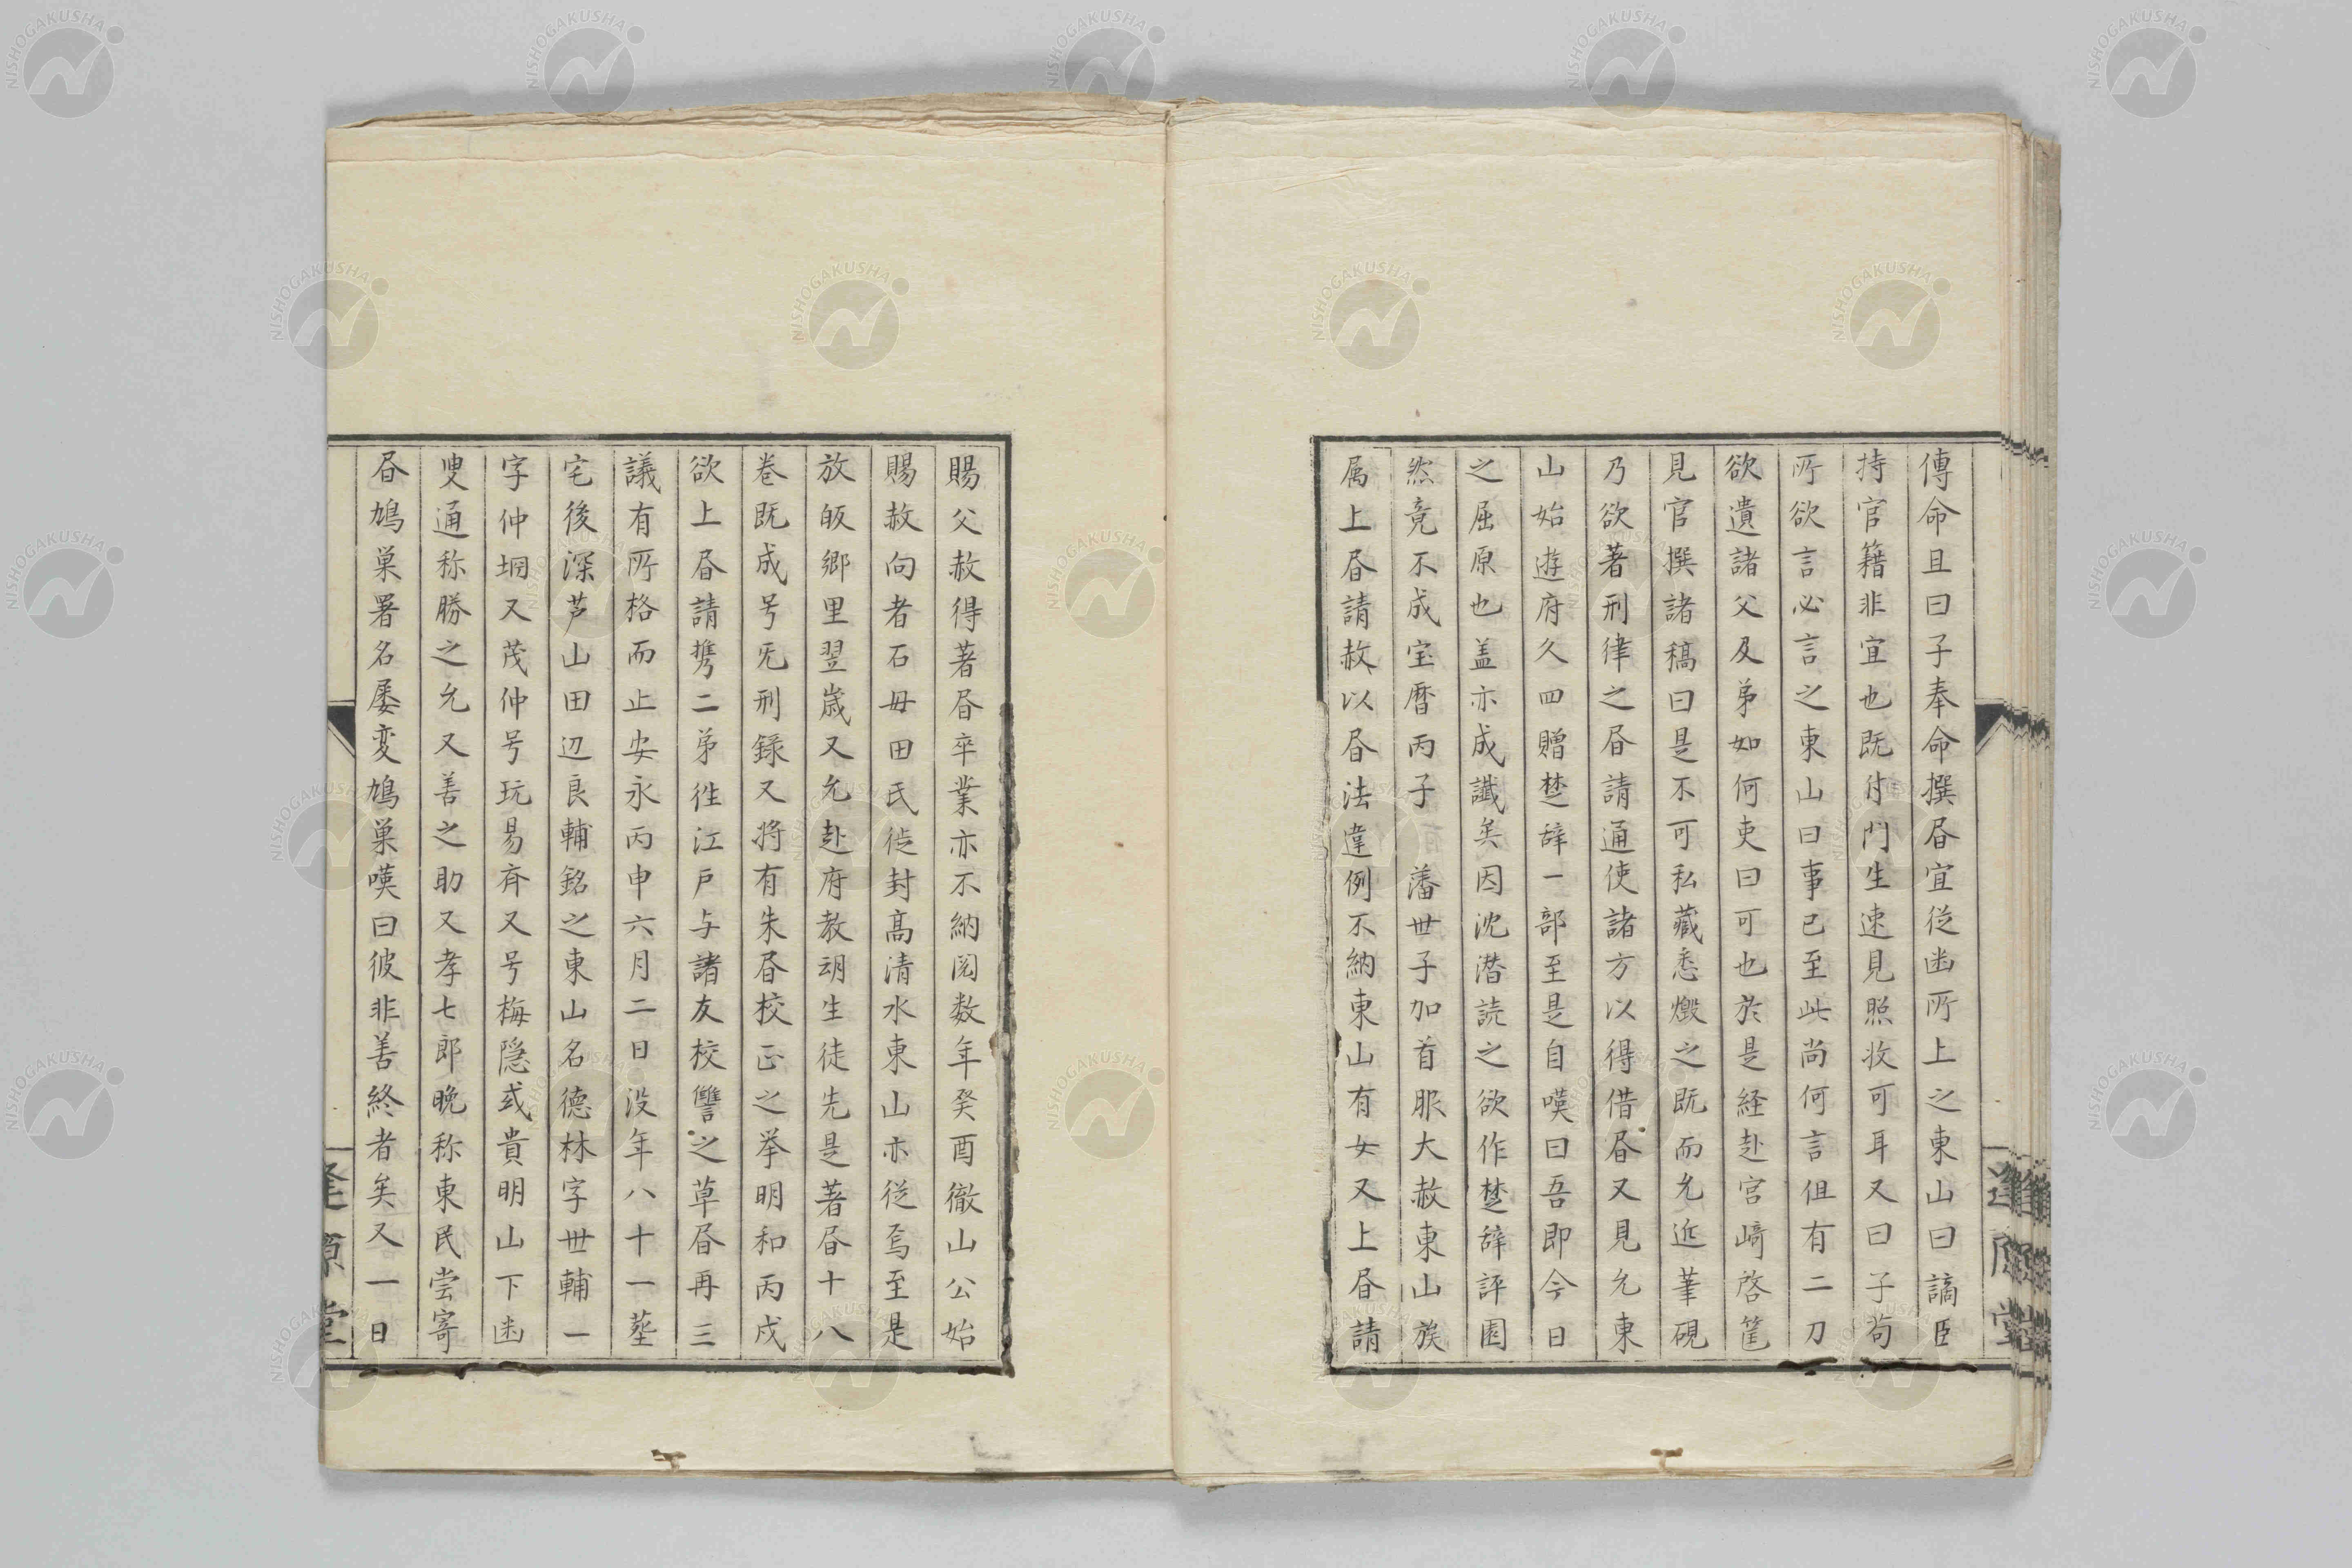 傳命且曰子奉命撰昏宜従凾所上之東山曰謫臣
持官籍非宜也既付門生速見照收可耳又曰子苟
所欲言必言之東山曰事已至此尚何言但有二刀
欲遺諸父及弟如何吏曰可也於是経赴宮﨑啓筐
見官撰諸稿曰是不可私藏悉燬之既而允近筆硯
乃欲著刑律之昏請通使諸方以得借昏又見允東
山始遊府久四贈楚辞一部至是自嘆曰吾即今日
之屈原也盖亦成讖矣因沈潜読之欲作楚辞評園
然竟不成宝暦丙子　藩世子加首服大赦東山族
属上昏請赦以昏法違例不納東山有女又上昏請
賜父赦得著昏卒業亦不納閲数年癸酉徹山公始
賜赦向者石毋田氏徙封髙清水東山亦従焉至是
放皈郷里翌歳又允赴府教翊生徒先是著昏十八
巻既成号旡刑録又将有朱昏校正之挙明和丙戌
欲上昏請携二弟徃江戸与諸友校讐之草昏再三
議有所格而止安永丙申六月二日没年八十一塟
宅後深芦山田辺良輔銘之東山名德林字世輔一
字仲垌又茂仲号玩易斉又号梅隠或貴明山下凾
叟通称勝之允又善之助又孝七郎晩称東民尝寄
昏鳩巣署名屡変鳩巣嘆曰彼非善終者矣又一日
逢原堂